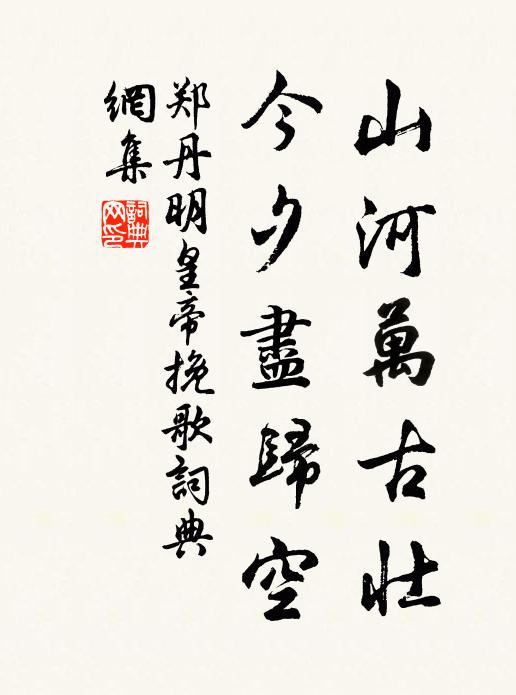 山河萬古壯
今夕盡歸空
郑丹明皇帝挽歌詞典
網集
詞典
网印